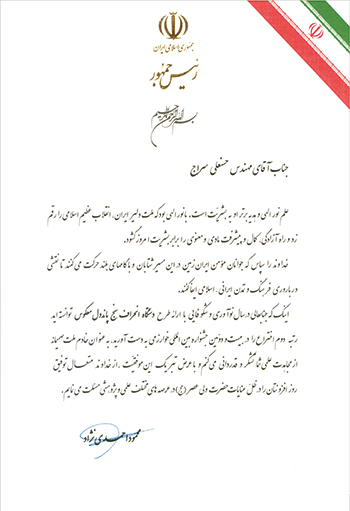 جمهوری اسلامی ایران
رئیس جمهور
بسم الله الرحمن الرحیم
جناب آقای مهندس حسنعلی سراج
علم نور الهی و هدیه برتر او به بشریت است. با نور الهی بود که ملت دلیر ایران، انقلاب عظیم اسلامی را رقم
زد و راه آزادگی، کمال و پیشرفت مادی و معنوی را برابر بشریت امروز گشود.
خداوند را سپاس که جوانان مؤمن ایران زمین در این مسیر شتابان و با گامهای بلند حرکت می کنند تا نقشی
در باروری فرهنگ و تمدن ایرانی، اسلامی ایفا کنند.
اینک که جنابعالی در سال نوآوری و شکوفایی با ارائه طرح دستگاه انحراف سنج پاندول معکوس توانسته اید
رتبه دوم اختراع را در بیست و دومین جشنواره بین المللی خوارزمی به دست آورید، به عنوان خادم ملت صمیمانه
از مجاهدت علمی شما تشکر و قدردانی می کنم و با عرض تبریک این موفقیت، از خداوند متعال توفیق
روز افزونتان را در ظل عنایات حضرت ولی عصر (عج) در عرصه های مختلف علمی و پژوهشی مسئلت می نمایم.
محمود احمدی نژاد